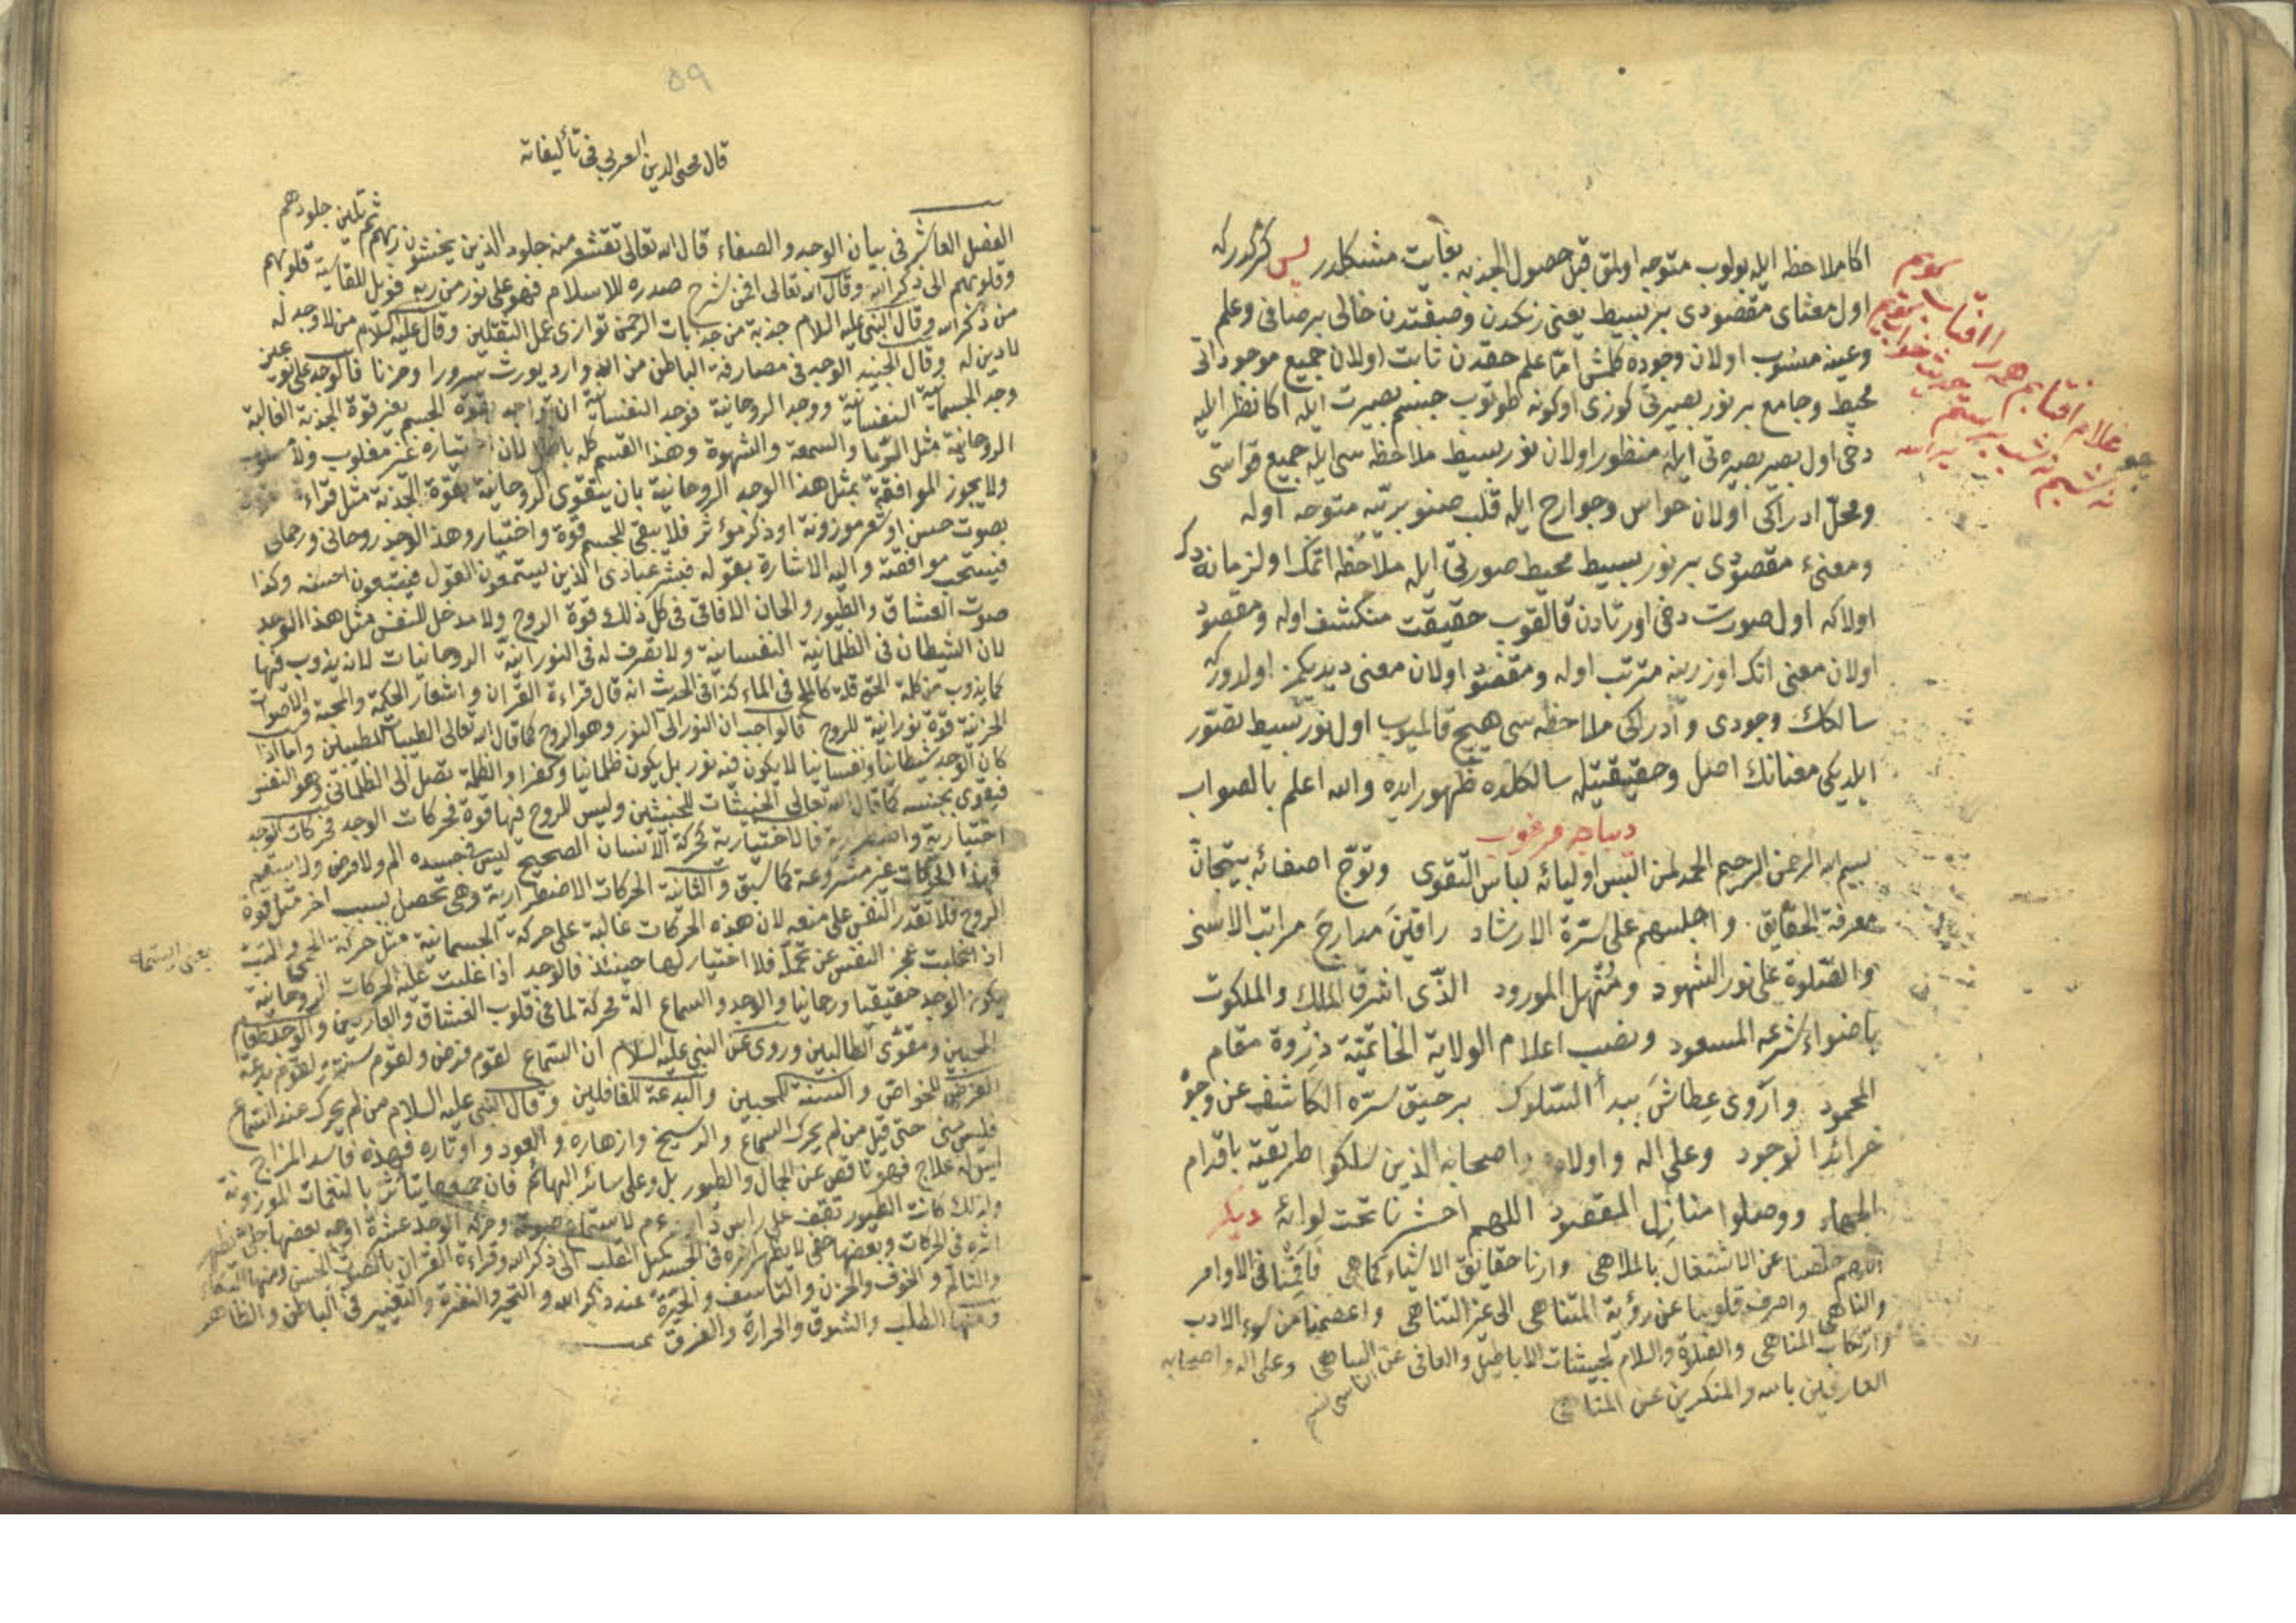 اكا ملاحظه ايله بولوب متوجه اولق قبل حصول الجذبه بغايت مشكلدر پس كركدركه
اول معناى مقصودى بر بسيط يعنى رنكدن وصفتدن خالى بر صافى وعلم
وعينه منسوب اولان وجوده كلمش اما علم حقدن ثابت اولان جميع موجوداتى
محيط وجامع بر نور بصيرتى كوزى اوكونه طوتوب چشم بصيرت ايله اكا نظر ايليه
دخى اول بصير بصيرتى ايله منظور اولان نور بسيط ملاحظه سى ايله جميع قواسى
ومحل ادراكى اولان حواس وجوارح ايله قلب صنوبريه متوجه اوله
ومعنىء مقصودى بر نور بسيط محيط صورتى ايله ملاحظه اتمك اولزمانه دك
اولا كه اول صورت دخى اورتادن قالقوب حقيقت منكشف اوله ومقصود
اولان معنى انك اوزرينه مترتب اوله ومقصود اولان معنى ديديكمز اولدركه
سالكك وجودى وادراكى ملاحظه سى هيچ قالميوب اول نور بسيط تصور
ايلديكى معنانك اصل وحقيقتيله سالكده ظهور ايده والله اعلم بالصواب
ديباجه مرغوب
بسم الله الرحمن الرحيم الحمد لمن البس اوليائه لباس التقوى وتوج اصفيائه بتيجان
معرفة الحقايق واجلسهم على سرة الارشاد راقين مدارج مراتب الاسنى
والصلوة على نور الشهود ومنهل المورود الذى اشرق الملك والملكوت
باضواء شرعه المسعود ونصب اعلام الولاية الخاتمية ذروة مقام
المحمود واروى عطاش بيدأ السلوك برحيق سره الكاشف عن وجوه
خرائد الوجود وعلى اله واولاده واصحابه الذين سلكوا طريقته باقدام
ووصلوا منازل المقصود اللهم احشرنا تحت لوائه ديكر
اللهم خلصنا عن الاشتغال بالملاهى وارنا حقايق الاشياء كما هى فاقمنا فى الاوامر
والناهى واصرف قلوبنا عن رؤية المتناهى الى عز التناهى واعصمنا من سوء الادب
وارتكاب المناهى والصلاة والسلام والعافى عن الساهى وعلى اله واصحابه
العارفين بالله والمنكرين عن المناهى
چو غلام افتابم همه ز افتاب كويم
نه شبم نه شب پرستم كه حديث خواب كويم
٥٩
قال محى الدين العربى فى تأليفاته
الفصل العاشر فى بيان الوجد والصفاء قال الله تعالى تقشعر منه جلود الذين يخشون ربهم ثم تلين جلودهم
وقلوبهم الى ذكر الله وقال الله تعالى افمن شرح صدره للاسلام فهو على نور من ربه فويل للقاسية قلوبهم
من ذكر الله وقال النبى عليه السلام جذبة من جذبات الرحمن توازى عمل الثقلين وقال عليه السلام من لا وجد له
لا دين له وقال الجنيد الوجد فى مصارفة الباطن من الله وارد يورث سرورا وحزنا فالوجد على نوعين
وجد الجسمانية النفسانية ووجد الروحانية فوجد النفسانية ان تواجد بقوة الجسم بغير قوة الجذبة الغالبة
الروحانية مثل الريا والسمعة والشهوة وهذا القسم كله باطل لان اختياره غير مغلوب ولا مسلوب
ولا يجوز الموافقة بمثل هذا الوجد الروحانية بان يتقوى الروحانية بقوة الجذبة مثل قراءة
بصوت حسن او شعر موزونة او ذكر مؤثر فلا يبقى للجسم قوة واختيار وهذا الوجد روحانى ورحمانى
فيستحب موافقته واليه الاشارة بقوله فبشر عبادى الذين يستمعون القول فيتبعون احسنه وكذا
صوت العشاق والطيور والحان الافاقى فى كل ذلك قوة الروح ولا مدخل للنفس مثل هذا الوجد
لان الشيطان فى الظلمانية النفسانية ولا تصرف له فى النورانية الروحانيات لانه يذوب فيها
كما يذوب من كلمة الحوقلة كالملح فى الماء كذا فى الحدث انه قال قراءة القران واشعار الحكمة والمحبة والاصوات
الحزينة قوة نورانية للروح فالواجب ان النور الى النور وهو الروح كما قال الله تعالى الطيبات للطيبين واما اذا
كان الوجد شيطانيا ونفسانيا لا يكون فيه نور بل يكون ظلمانيا وكفرا والظلمة تصل الى الظلمانى وهو النفس
فيقوى بجنسه كما قال الله تعالى الخبيثات للخبيثين وليس للروح فيها قوة فحركات الوجد
اختيارية واضطرارية فالاختيارية كحركة الانسان الصحيح ليس فى جسده الم ولا مرض ولا سقم
فهذا الحركات غير مشروعة كما سبق والثانية الحركات الاضطرارية وهى تحصل بسبب اخر مثل قوة
الروح فلا تقدر النفس على منعه لان هذه الحركات غالبة على حركة الجسمانية مثل حركة الحمى
اذا غلبت عجز النفس عن تحمل فلا اختيار لها حينئذ فالوجد اذا غلبت عليه الحركات الروحانية
يكون الوجد حقيقيا ورحمانيا والوجد والسماع الة محركة لما فى قلوب العشاق والعارفين والوجد طعام
المحبين ومقوى الطالبين وروى عن النبى عليه السلام ان السماع لقوم فرض ولقوم سنة ولقوم بدعة
الفرض للخواص والسنة للمحبين والبدعة للغافلين وقال النبى عليه السلام من لم يحرك عند السماع
فليس منى حتى قيل من لم يحرك السماع والربيع وازهاره والعود واوتاره فهذه فاسد المزاج
ليس له علاج فهو ناقص عن الجمال والطيور بل وعلى سائر البهائم فان جميعها يتأثر بالنغمات الموزونة
ولذلك كانت الطيور تقف على راس داود عم لاستماع صوته وحركة الوجد عشرة اوجه بعضها جلى يظهر
اثره فى الحركات وبعضها خفى لا يظهر اثره فى الجسد كميل القلب الى ذكر الله وقراءة القران بالصوت الحسن ومنها البكاء
والتألم والخوف والحزن والتاسف والحيرة عند ذكر الله والتحير والنفرة والتغيير فى الباطن والظاهر
ومنها الطلب والشوق والحرارة والعرق